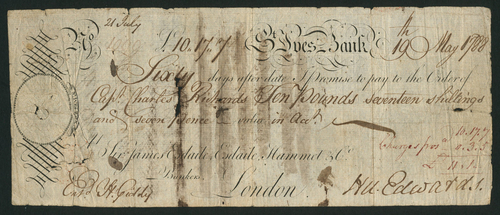 21 July
No £10.17.7 St. Ives Bank, 19th May 1788
Sixty days after date I Promise to pay to the Order of
Capt. Charles Richards Ten Pounds seventeen shillings
and seven pence Value in Acct.
At
Sir James Esdaile Esdaile Hammet & Co.
Bankers,
London.
10.17.7
Charges
£ 11.1.
Entd. H. Giddy
Hu. Edwards.